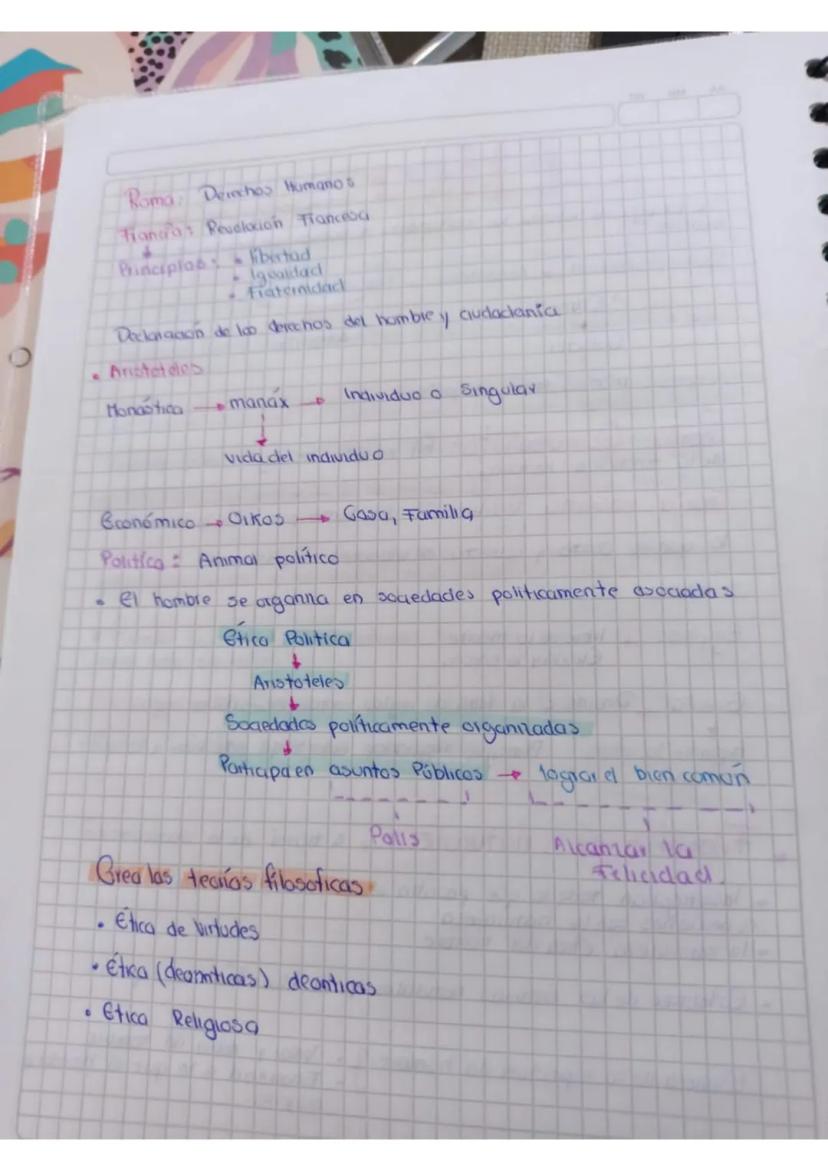 Roma: Derechos Humanos
Francia: Revolución Francesa
Principios: • libertad
• Igualdad
• Fraternidad
Declaración de los derechos del hombre y ciudadanía
• Aristoteles
Monástica → manáx → Individuo o Singular
vida del individuo
Económico → Oikos → Casa, Familia
Política: Animal político
• el hombre se organiza en sociedades politicamente asociadas
Ética Politica
Aristoteles
Sociedades políticamente organizadas
Participa en asuntos Públicos → lograr el bien común
Polis
Alcanzar la
Felicidad
Crea las teorías filosoficas
• Ética de virtudes
• Ética (deonticas) deonticas
• Etica Religiosa